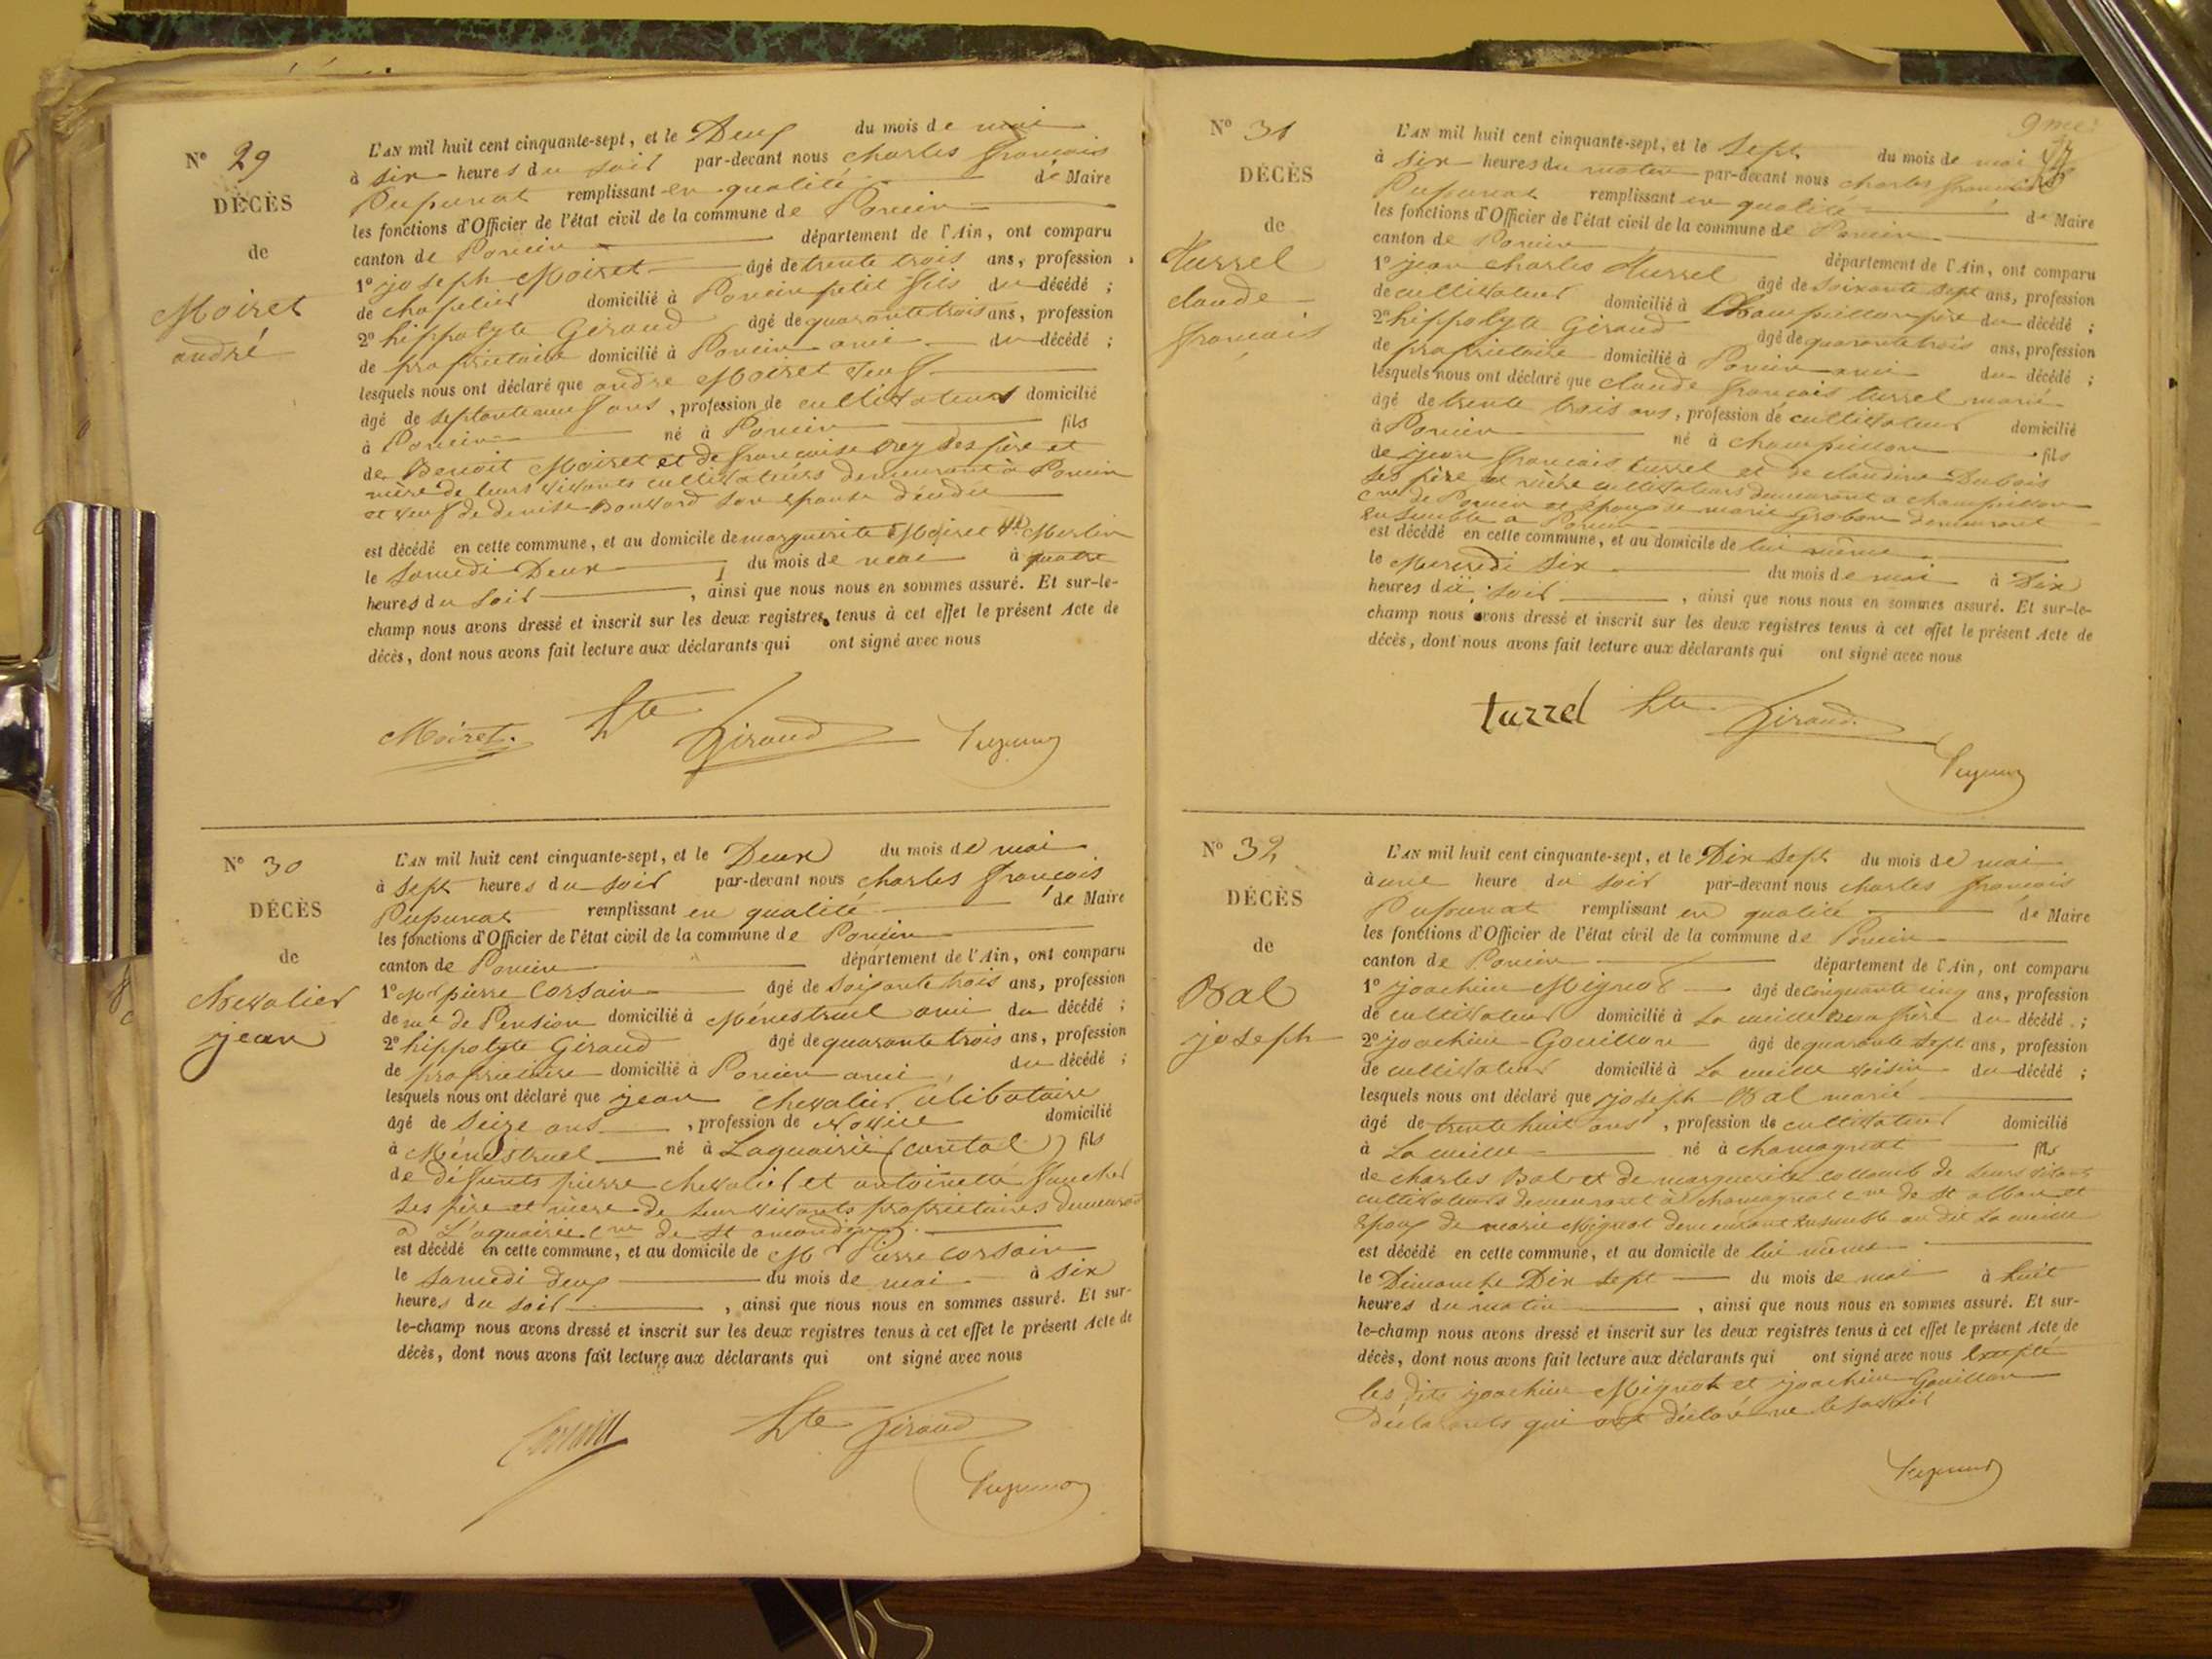 N° 29
DÉCÈS
de
Moiret
andré
L'AN mil huit cent cinquante-sept, et le Deux du mois de mai
à six heures du soir par-devant nous charles françois
Pupunat remplissant en qualité de Maire
les fonctions d'Officier de l'état civil de la commune de Poncin
canton de Poncin département de l'Ain, ont comparu
1° joseph Moiret âgé de trente trois ans, profession
de chapelier domicilié à Poncin petit fils du décédé ;
2° hippolyte Giraud âgé de quarante trois ans, profession
de propriétaire domicilié à Poncin ami du décédé ;
lesquels nous ont déclaré que andré Moiret veuf
âgé de septante neuf ans, profession de cultivateur domicilié
à Poncin né à Poncin fils
de Benoit Moiret et de françoise Rey ses père et
mère de leurs vivants cultivateurs demeurant à Poncin
et veuf de denise Bouvard son épouse décédée
est décédé en cette commune, et au domicile de marguerite Moiret Ve Merlin
le samedi Deux du mois de mai à quatre
heures du soir, ainsi que nous nous en sommes assuré. Et sur-le-
champ nous avons dressé et inscrit sur les deux registres tenus à cet effet le présent Acte de
décès, dont nous avons fait lecture aux déclarants qui ont signé avec nous
Moiret. Hte Giraud Pupunat
N° 30
DÉCÈS
de
chevalier
jean
L'AN mil huit cent cinquante-sept, et le Deux du mois de mai
à sept heures du soir par-devant nous charles françois
Pupunat remplissant en qualité de Maire
les fonctions d'Officier de l'état civil de la commune de Poncin
canton de Poncin département de l'Ain, ont comparu
1° Mr pierre Corsain âgé de soixante trois ans, profession
de me de Pension domicilié à Ménestruel ami du décédé ;
2° hippolyte Giraud âgé de quarante trois ans, profession
de propriétaire domicilié à Poncin ami, du décédé ;
lesquels nous ont déclaré que jean chevalier célibataire
âgé de seize ans, profession de Novice domicilié
à Ménestruel né à Laquairie (cantal) fils
de défunts pierre chevalier et antoinette faucher
ses père et mère de leur vivants propriétaires demeurant
à Laquairie cne de st
est décédé en cette commune, et au domicile de M Pierre Corsain
le samedi deux du mois de mai à six
heures du soir, ainsi que nous nous en sommes assuré. Et sur-
le-champ nous avons dressé et inscrit sur les deux registres tenus à cet effet le présent Acte de
décès, dont nous avons fait lecture aux déclarants qui ont signé avec nous
Corsain Hte Giraud
Pupunat
9me
N° 31
DÉCÈS
de
Turrel
claude
françois
L'AN mil huit cent cinquante-sept, et le sept du mois de mai
à six heures du matin par-devant nous charles françois
Pupunat remplissant en qualité de Maire
les fonctions d'Officier de l'état civil de la commune de Poncin
canton de Poncin département de l'Ain, ont comparu
1° jean charles Turrel âgé de soixante sept ans, profession
de cultivateur domicilié à Champeillon père du décédé ;
2° hippolyte Giraud âgé de quarante trois ans, profession
de propriétaire domicilié à Poncin ami du décédé ;
lesquels nous ont déclaré que claude françois turrel marié
âgé de trente trois ans, profession de cultivateur domicilié
à Poncin né à champeillon fils
de jean françois turrel et de claudine Dubois
ses père et mère cultivateurs demeurant à champeillon
cne de Poncin et époux de marie Grobon demeurant
ensemble à Poncin
est décédé en cette commune, et au domicile de lui même
le Mercredi six du mois de mai à Dix
heures du soir, ainsi que nous nous en sommes assuré. Et sur-le-
champ nous avons dressé et inscrit sur les deux registres tenus à cet effet le présent Acte de
décès, dont nous avons fait lecture aux déclarants qui ont signé avec nous
turrel Hte Giraud.
Pupunat
N° 32
DÉCÈS
de
Bal
joseph
L'AN mil huit cent cinquante-sept, et le Dix sept du mois de mai
à une heure du soir par-devant nous charles françois
Pupunat remplissant en qualité de Maire
les fonctions d'Officier de l'état civil de la commune de Poncin
canton de Poncin département de l'Ain, ont comparu
1° joachim Mignot âgé de cinquante cinq ans, profession
de cultivateur domicilié à La cueille beau père du décédé ;
2° joachim Gouillon âgé de quarante sept ans, profession
de cultivateur domicilié à La cueille voisin du décédé ;
lesquels nous ont déclaré que joseph Bal marié
âgé de trente huit ans, profession de cultivateur domicilié
à La cueille né à chamagnat fils
de charles Bal et de marguerite collomb de leurs vivants
cultivateurs demeurant à chamagnat cne de st alban et
époux de marie Mignot demeurant ensemble au dit La cueille
est décédé en cette commune, et au domicile de lui même
le Dimanche Dix sept du mois de mai à huit
heures du matin, ainsi que nous nous en sommes assuré. Et sur-
le-champ nous avons dressé et inscrit sur les deux registres tenus à cet effet le présent Acte de
décès, dont nous avons fait lecture aux déclarants qui ont signé avec nous Excepté
les dits joachim Mignot et joachim Gouillon
déclarants qui ont déclaré ne le savoir
Pupunat